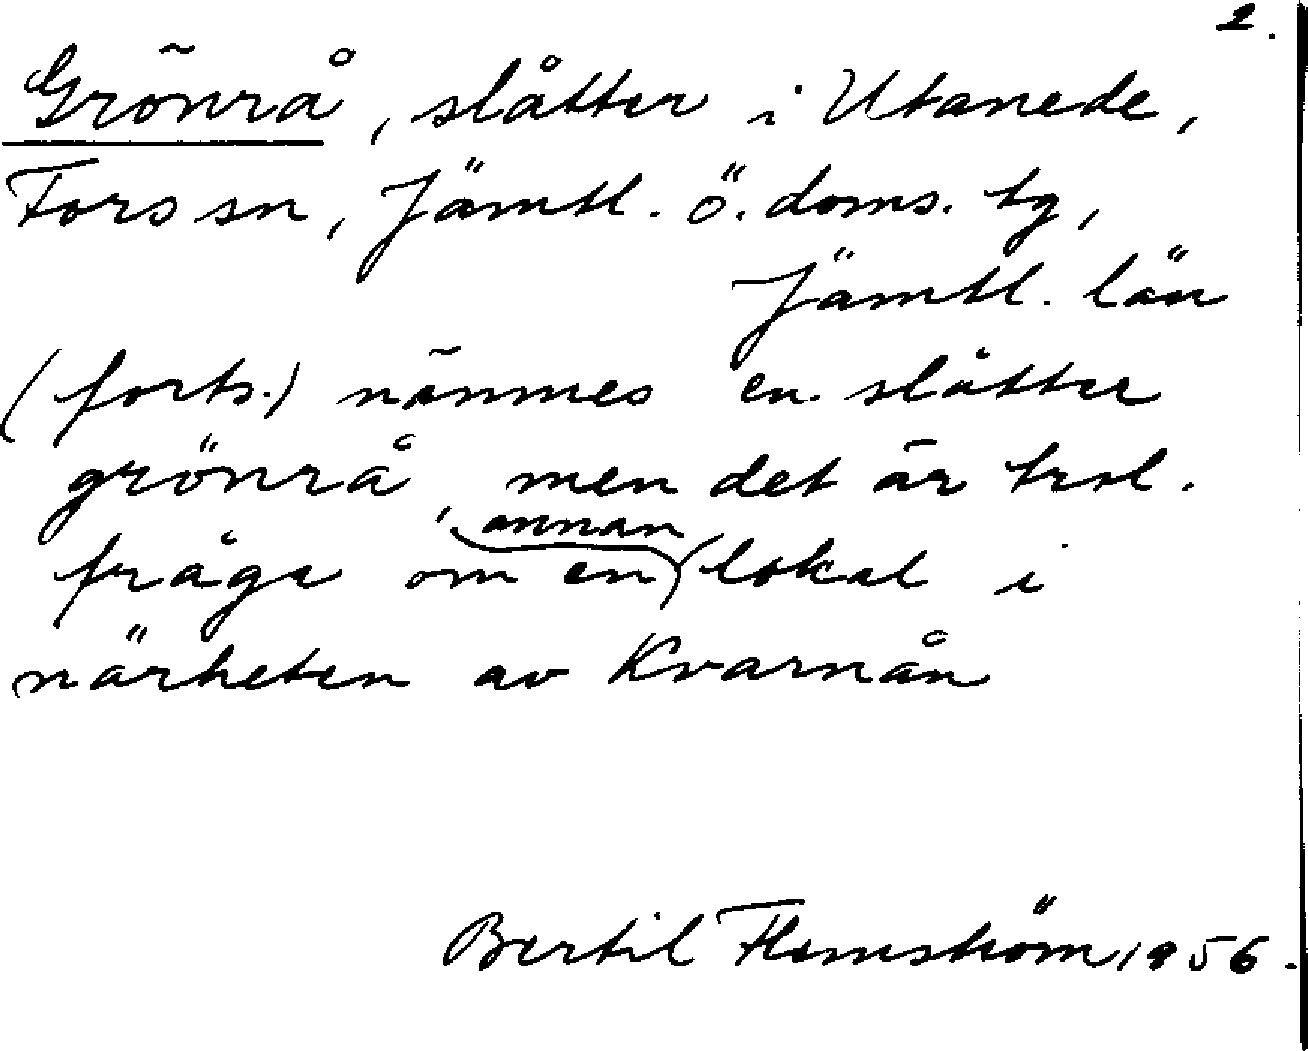 2.
Grönrå, slåtter i Utanede,
Fors sn, Jämtl. ö. doms. tg,
Jämtl. län
(forts.) nämnes en slåtter
grönrå, men det är trol.
fråga om en annan lokal i
närheten av Kvarnån
Bertil Flemström, 1956.